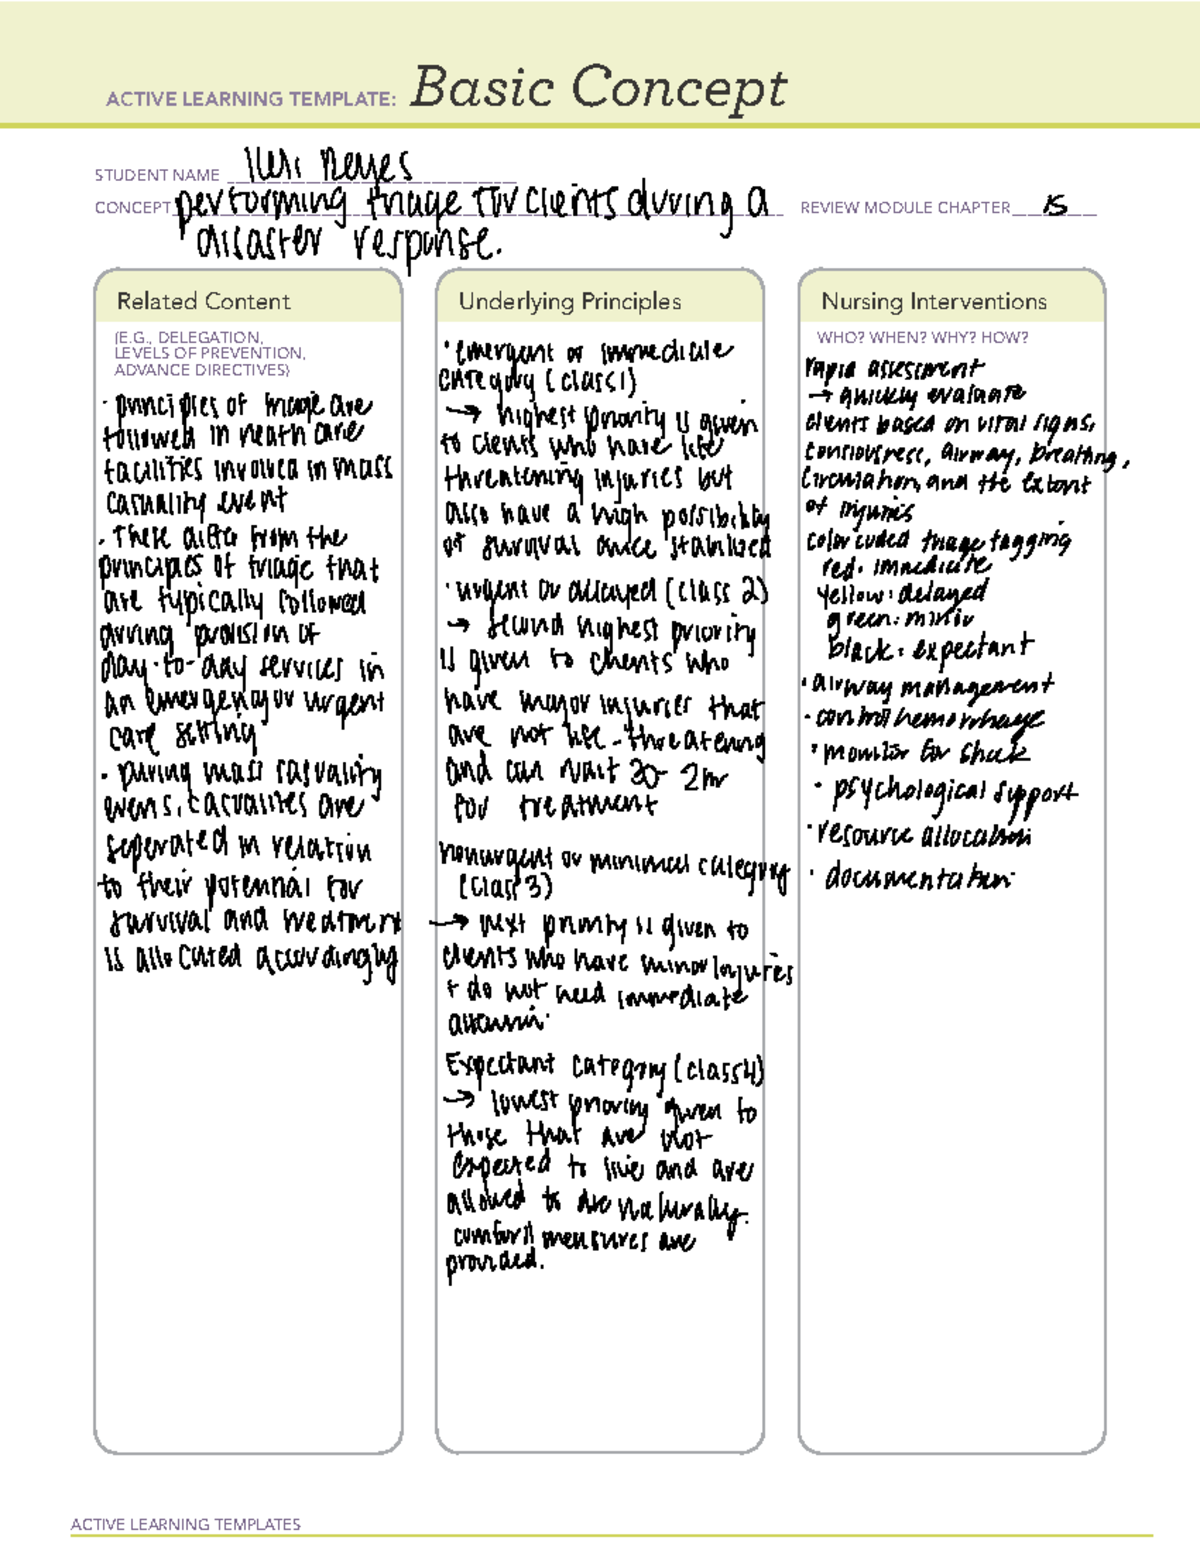 ACTIVE LEARNING TEMPLATE: Basic Concept
STUDENT NAME Reyes
CONCEPT performing triage for clients during a
disaster response.
REVIEW MODULE CHAPTER 15
Related Content
(E.G., DELEGATION,
LEVELS OF PREVENTION,
ADVANCE DIRECTIVES)
· principles of triage are
followed in health care
facilities involved in mass
casuality event
· These differ from the
principles of triage that
are typically followed
during provision of
day-to-day services in
an emergency or urgent
care setting
· During mass casuality
evens, casualites are
seperated in relation
to their potential for
survival and treatment
is allocated accordingly
Underlying Principles
· emergent or immediate
category (class 1)
→ highest priority is given
to clients who have life
threatening injuries but
also have a high possibility
of survival once stabilized
· urgent or delayed (class 2)
→ second highest priority
is given to clients who
have major injuries that
are not life-threatening
and can wait 30- 2hr
for treatment
nonurgent or minimal category
(class 3)
→ next priority is given to
clients who have minor injuries
+ do not need immediate
Expectant category (class 4)
→ lowest priority given to
those that are not
expected to live and are
allowed to die naturally.
comfort measures are
provided.
Nursing Interventions
WHO? WHEN? WHY? HOW?
rapid assessment
→ quickly evaluate
clients based on vital signs,
consiousness, airway, breathing,
circulation, and the extent
of injuries
color coded triage tagging
red: immediate
yellow: delayed
green: minor
black: expectant
· airway management
· control hemorrhage
· monitor for shock
· psychological support
· resource allocation
· documentation
ACTIVE LEARNING TEMPLATES